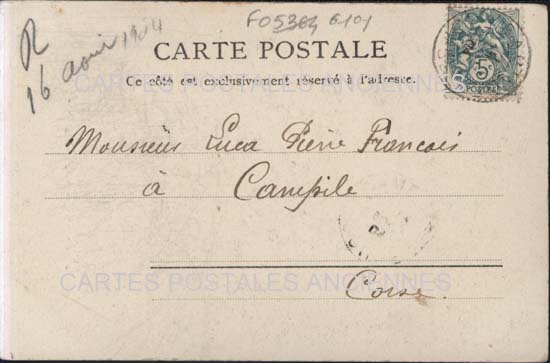 R
16 aout 1904
F05364 6101
CARTE POSTALE
Ce côté est exclusivement réservé à l'adresse.
5c
POSTES
CARTES POSTALES ANCIENNES
Monsieur Luca Pierre Francois
à Campile
CARTES POSTALES ANCIENNES
Corse.